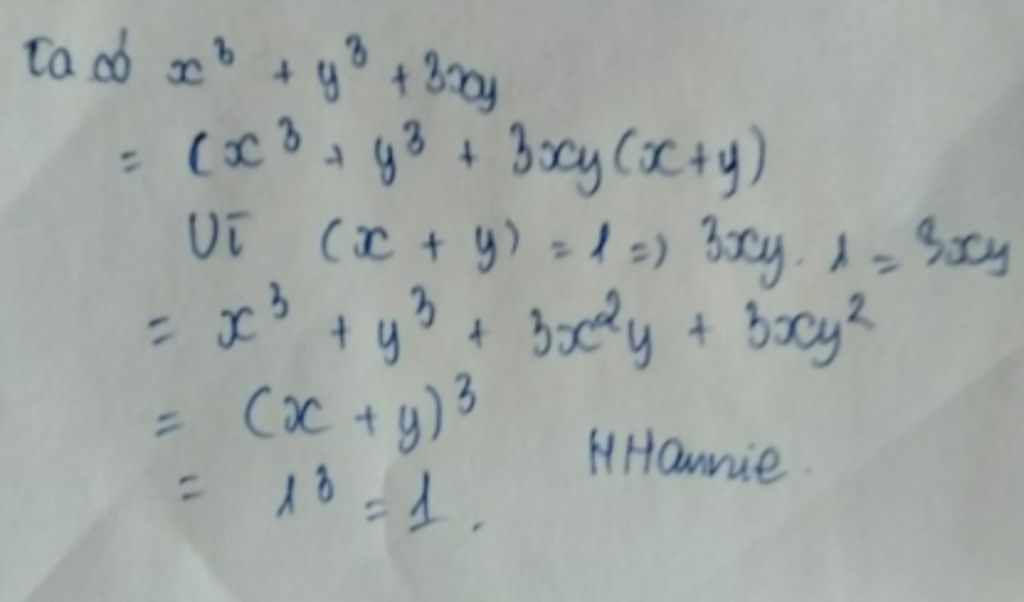 Ta có x³ + y³ + 3xy
= (x³ + y³ + 3xy(x+y)
Vì (x + y) = 1 => 3xy. 1 = 3xy
= x³ + y³ + 3x²y + 3xy²
= (x + y)³
= 1³ = 1.
HHannie.